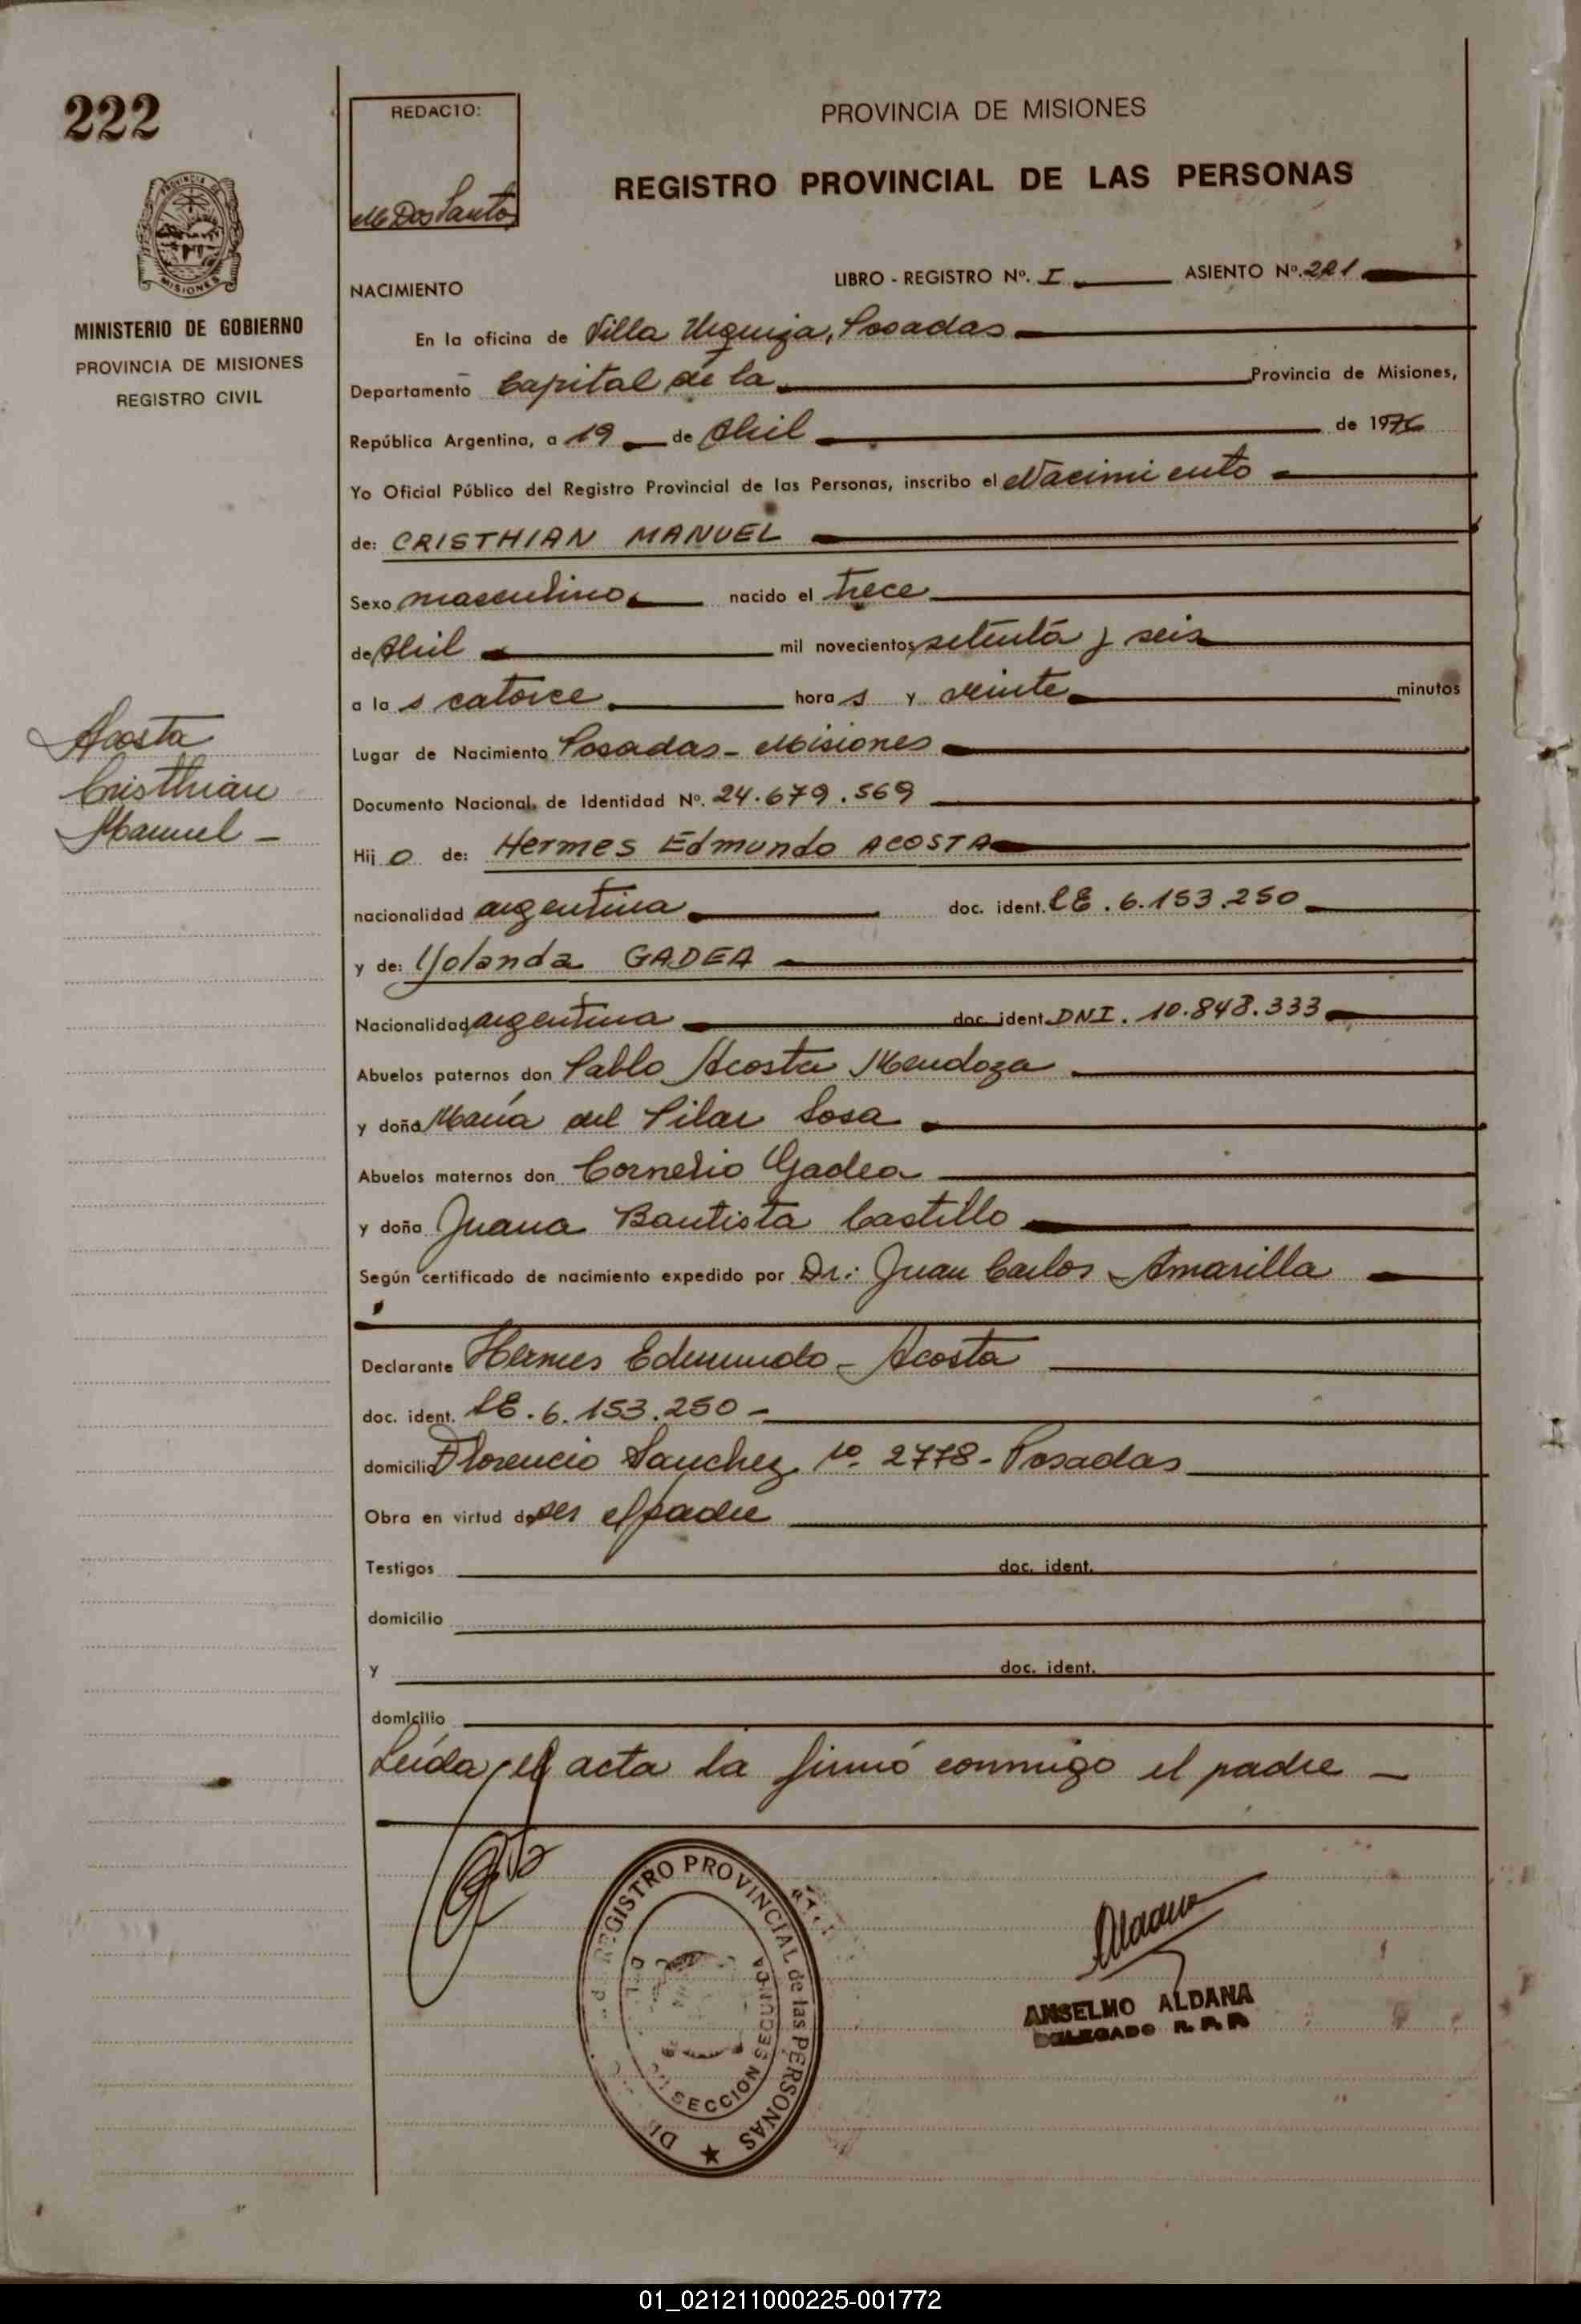 222
REDACTO:
M Dos Santos
PROVINCIA DE MISIONES
REGISTRO PROVINCIAL DE LAS PERSONAS
MINISTERIO DE GOBIERNO
PROVINCIA DE MISIONES
REGISTRO CIVIL
LIBRO - REGISTRO Nº. I ASIENTO Nº. 221
NACIMIENTO
En la oficina de Villa Urquiza, Posadas
Departamento Capital de la Provincia de Misiones,
República Argentina, a 19 de Abril de 1976
Yo Oficial Público del Registro Provincial de las Personas, inscribo el Nacimiento
de: CRISTHIAN MANUEL
Sexo masculino nacido el trece
de Abril mil novecientos setenta y seis
a la s catorce hora s y veinte minutos
Acosta
Cristhian
Manuel -
Lugar de Nacimiento Posadas - Misiones
Documento Nacional de Identidad Nº. 24.679.569
Hij o de: Hermes Edmundo ACOSTA
nacionalidad argentina doc. ident. LE. 6.153.250
y de: Yolanda GADEA
Nacionalidad argentina doc. ident. DNI. 10.848.333
Abuelos paternos don Pablo Acosta Mendoza
y doña María del Pilar Sosa
Abuelos maternos don Cornelio Gadea
y doña Juana Bautista Castillo
Según certificado de nacimiento expedido por Dr.: Juan Carlos Amarilla
Declarante Hermes Edmundo - Acosta
doc. ident. LE. 6.153.250 -
domicilio Florencio Sanchez Nº 2778 - Posadas
Obra en virtud de ser el padre
Testigos doc. ident.
domicilio
y doc. ident.
domicilio
Leída el acta la firmó conmigo el padre -
REGISTRO PROVINCIAL de las PERSONAS
SECCION SEGUNDA
Aldana
ANSELMO ALDANA
DELEGADO R. P. P.
01_021211000225-001772